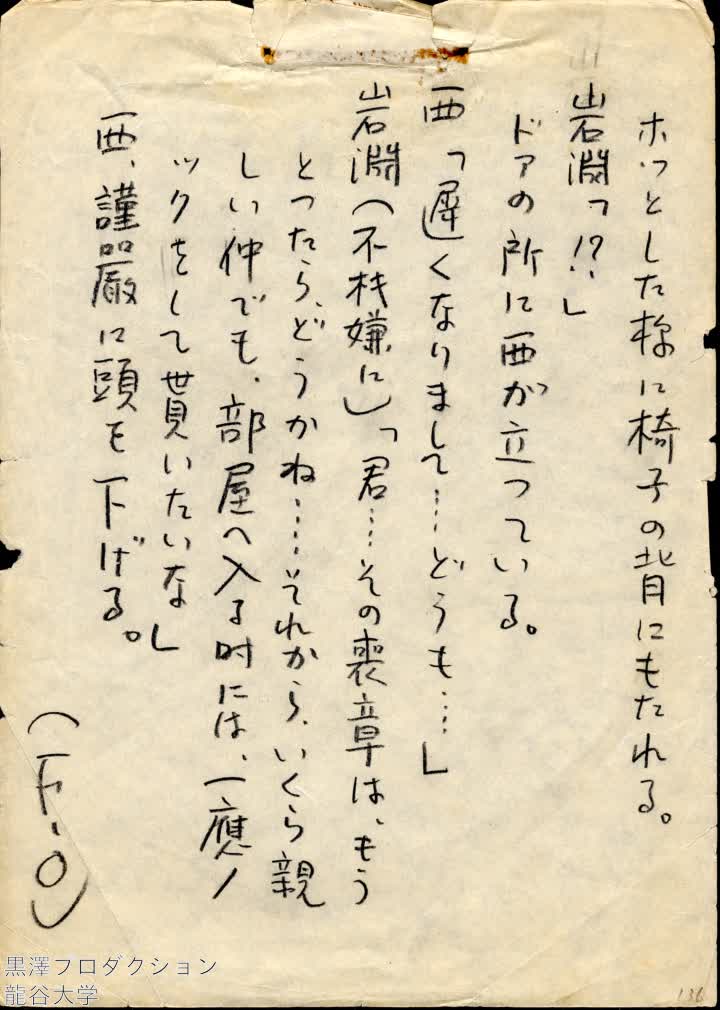 ホッとした様に椅子の背にもたれる。
岩淵っ!?」
ドアの所に西が立つている。
西「遅くなりまして……どうも……」
岩淵(不机嫌に)「君…その喪章は、もう
とつたら、どうかね……それから、いくら親
しい仲でも、部屋へ入る时には、一應ノ
ックをして貰いたいな」
西、謹厳に頭を下げる。
(F・O)
黒澤プロダクション
龍谷大学
136